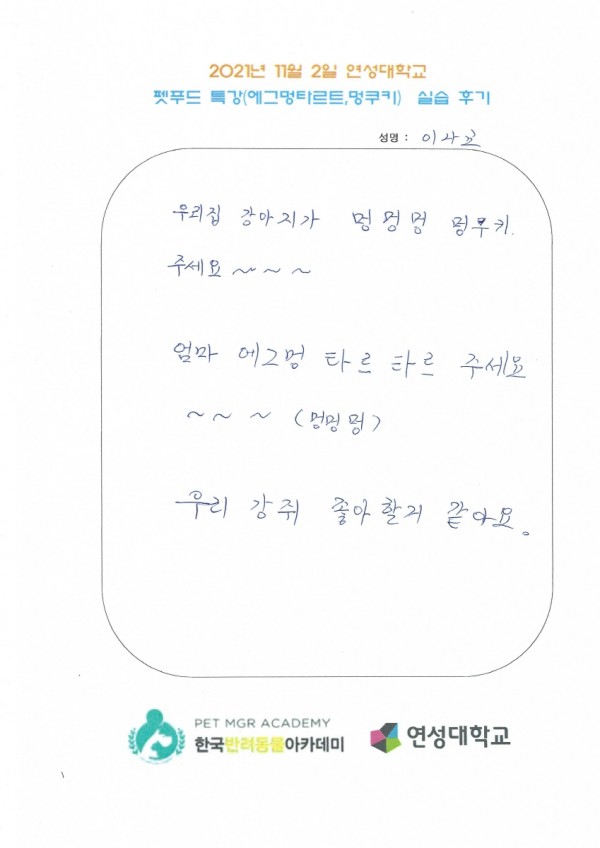 2021년 11월 2일 연성대학교
펫푸드 특강(에그멍타르트,멍쿠키) 실습 후기
성명 :
우리집 강아지가 멍 멍 멍 멍쿠키.
주세요 ~ ~ ~
엄마 에그멍 타르 타르 주세요
~ ~ ~ (멍멍멍)
우리 강쥐 좋아할거 같아요.
PET MGR ACADEMY
한국반려동물아카데미
연성대학교